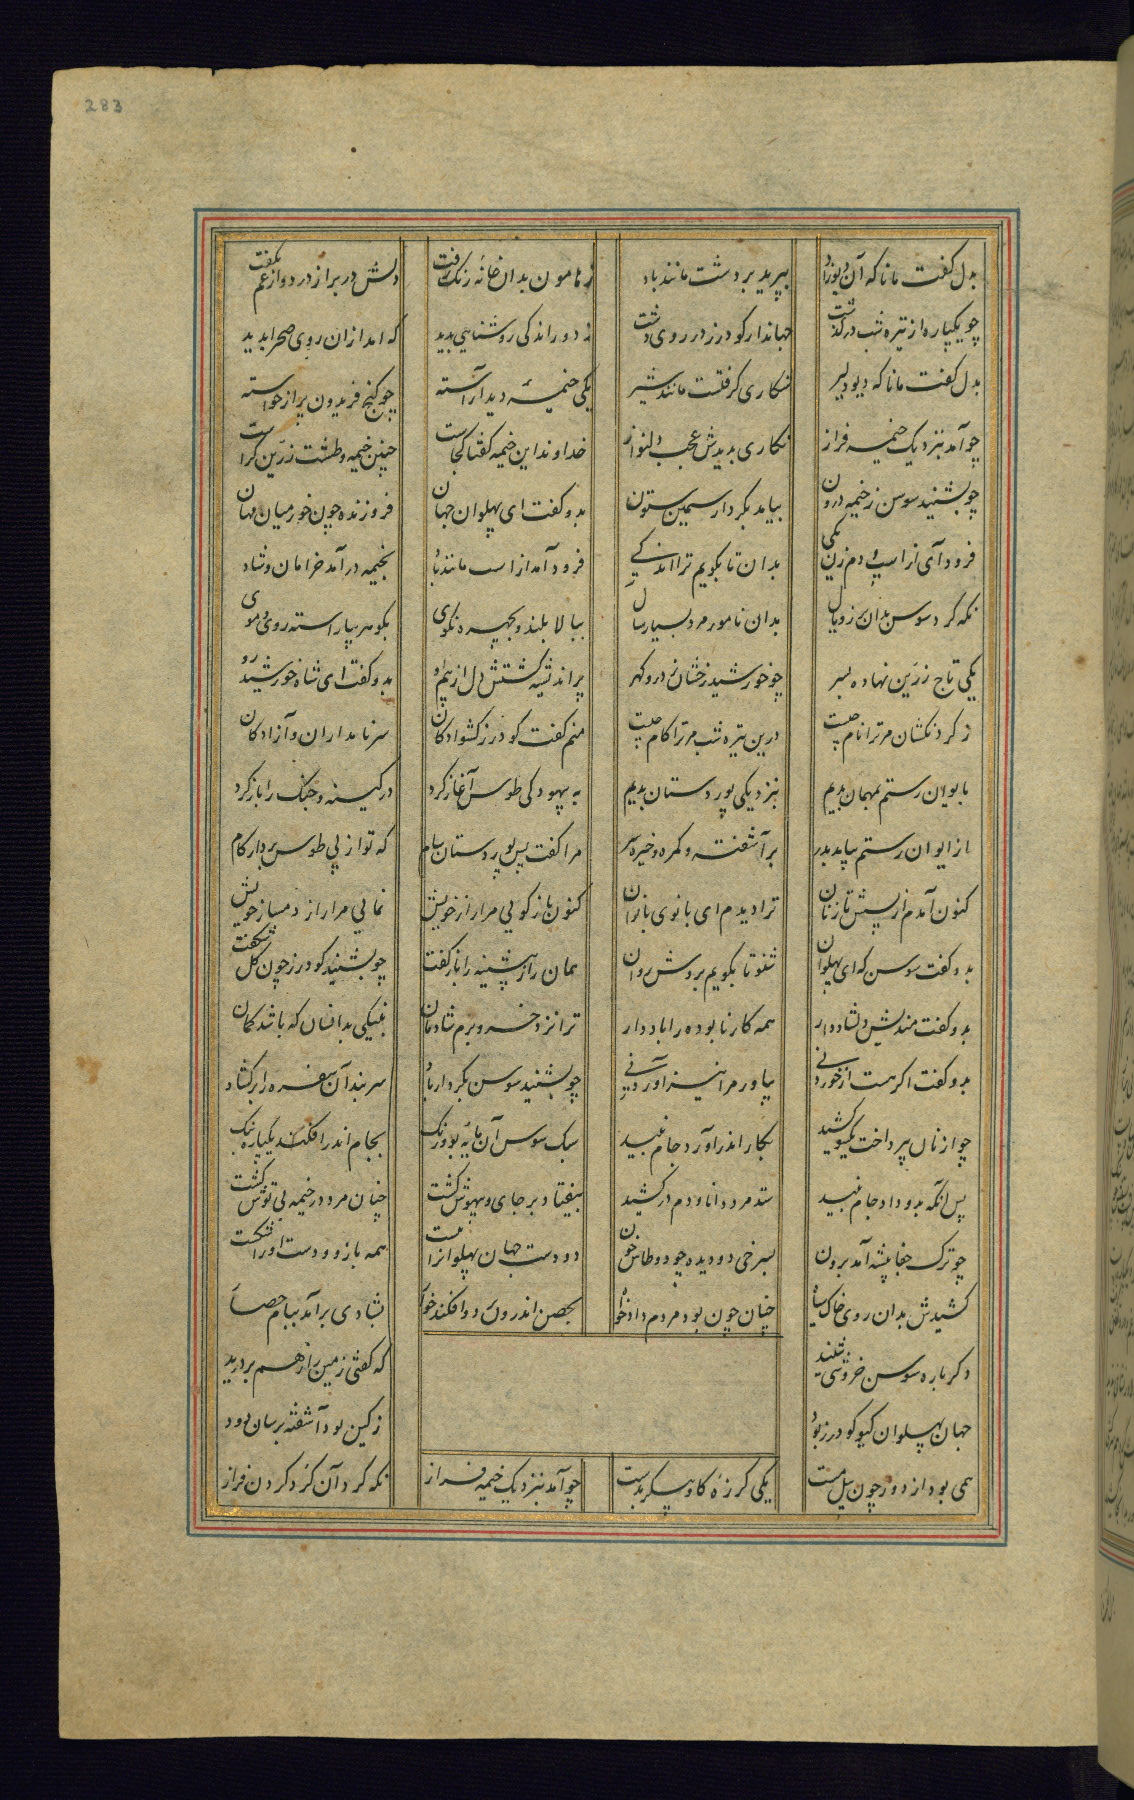 283
بدل گفت مانا که آن دیوزاد بپرید بر دشت مانند باد
ز هامون بدان خانه زنگ رفت دلش در بر از درد و از غم بکفت
چو یکپاره از تیره شب درگذشت جهاندار گودرز در روی دشت
ز دور اندکی روشنایی بدید که آمد از آن روی صحرا پدید
بدل گفت مانا که دیو دلیر شکاری گرفتست مانند شیر
یکی خیمه دید آراسته چو گنج فریدون پر از خواسته
چو آمد بنزدیک خیمه فراز نگاری بدیدش عجب دلنواز
خداوند این خیمه گفتا کجاست چنین خیمه و طشت زرین کراست
چو بشنید سوسن ز خیمه درون بیامد بکردار سیمین ستون
بدو گفت ای پهلوان جهان فروزنده چون خور میان مهان
فرود آی از اسپ و دم زن یکی بدان تا بگویم ترا اندکی
فرود آمد از اسب مانند باد بخیمه درآمد خرامان و شاد
نگه کرد سوسن بدان برز و یال بدان نامور مرد بسیار سال
ببالا بلند و بچهره نکوی بگوهر بیاراسته روی و موی
یکی تاج زرین نهاده بسر چو خورشید رخشان ز در و گهر
پر اندیشه گشتش دل از بیم او بدو گفت ای شاه خورشید رو
ز گردنکشان مر ترا نام چیست درین تیره شب مر ترا کام چیست
منم گفت گودرز کشوادگان سر نامداران و آزادگان
بایوان رستم بمهمان بدیم بنزدیکی پور دستان بدیم
به بیهودگی طوس آغاز کرد در کینه و جنگ را باز کرد
از ایوان رستم بیامد بدر برآشفته و گمره و خیره سر
مرا گفت پس پور دستان سام که تو از پی طوس بردار کام
کنون آمدم از پسش تازنان ترا دیدم ای بانوی بانوان
کنون بازگویی مرا راز خویش نمایی مرا راز دمساز خویش
بدو گفت سوسن که ای پهلوان شنو تا بگویم بروشن روان
همان راز پیشینه را باز گفت چو بشنید گودرز چون گل شکفت
بدو گفت مندیش و دل شاد دار همه کار نابوده را باد دار
ترا نزد خسرو برم شادمان بنیکی بدانسان که باشد گمان
بدو گفت اگر هست از خوردنی بیاور مرا نیز آوردنی
چو بشنید سوسن بکردار باد سر بند آن سفره را برگشاد
چو از نان بپرداخت یکسو کشید بکار اندر آورد جام نبید
سبک سوسن آن مایه بو و رنگ بجام اندر افکند یکپاره بنگ
پس آنگه بدو داد جام نبید ستد مرد دانا و دم درکشید
بیفتاد بر جای و بیهوش گشت چنان مرد در خیمه بی توش گشت
چو ترک جفاپیشه آمد برون بسرخی دو دیده چو دو طاس خون
دو دست جهان پهلوانرا ببست همه بازو و دست او را شکست
کشیدش بدان روی خاک سیاه چنان چون بود مردم دادخواه
بحصن اندرون در دوافکند خوار بشادی برآمد ببام حصار
دگرباره سوسن خروشی شنید که گفتی زمین را ز هم بردرید
جهان پهلوان گیو گودرز بود ز کین بود آشفته برسان دود
همی بود از دور چون پیل مست یکی گرزه گاوپیکر بدست
چو آمد بنزدیک خیمه فراز نگه کرد آن گرد گردن فراز